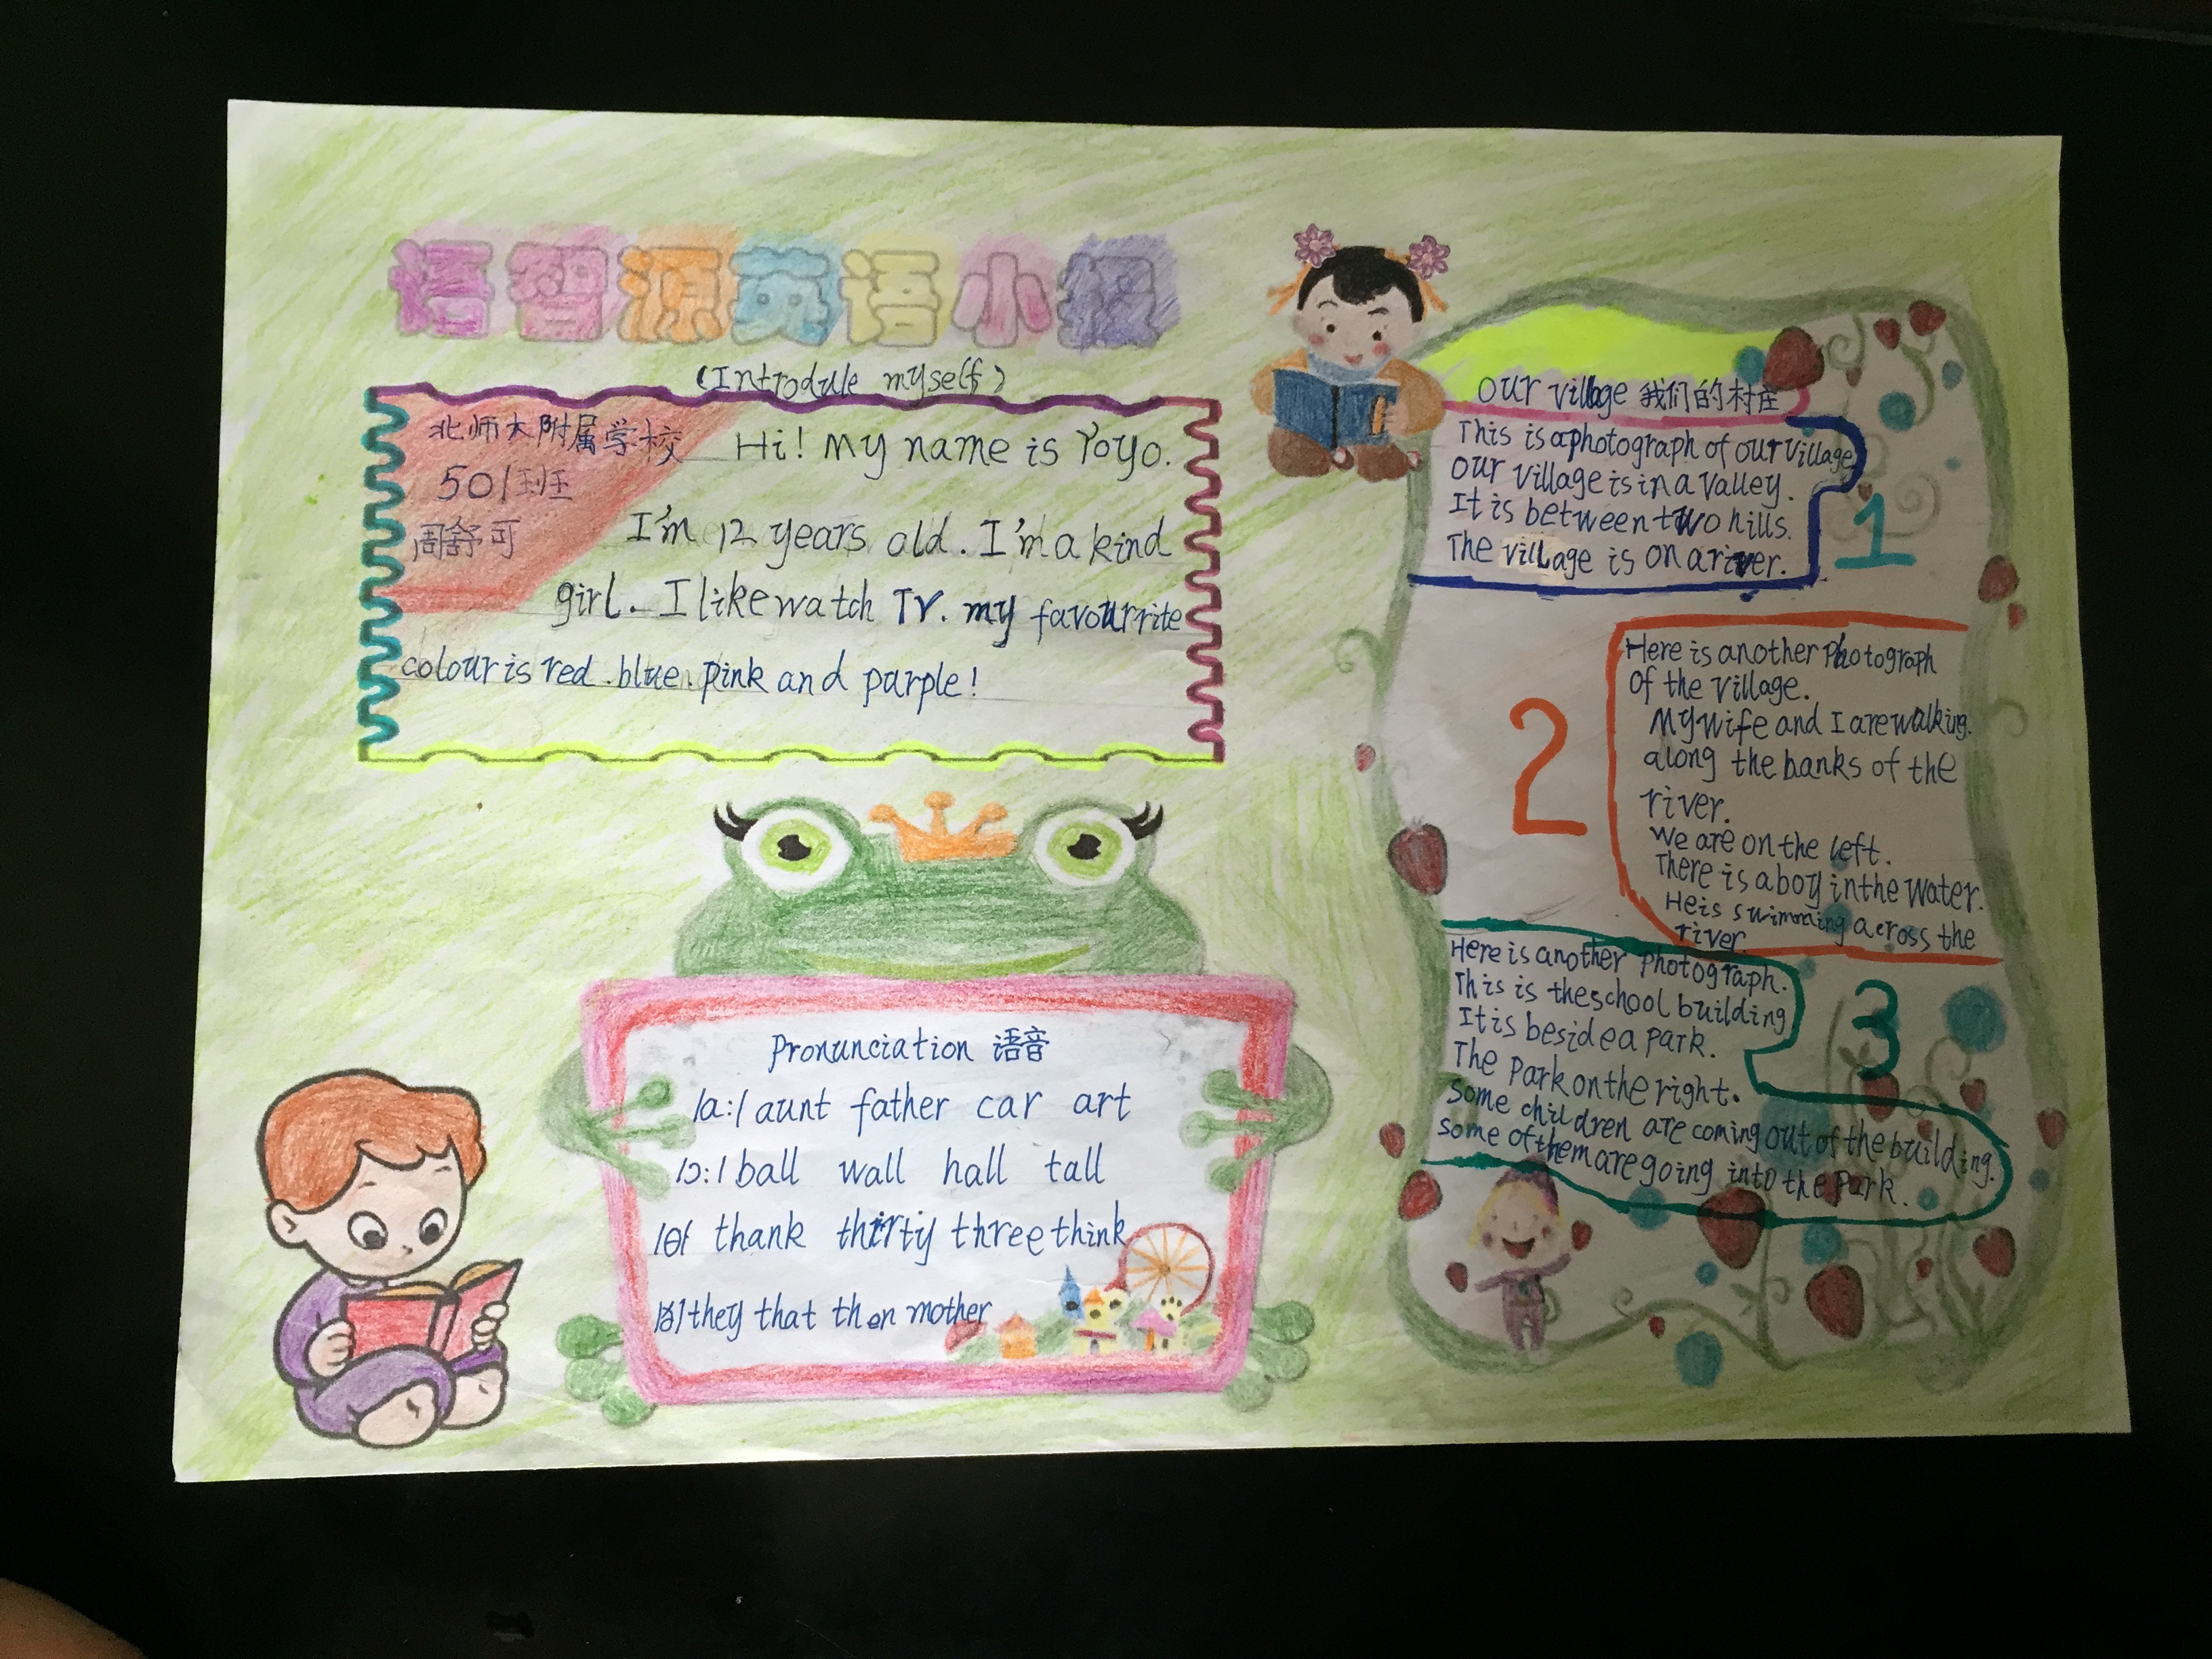 语智源英语小报
(Introdule myself)
北师大附属学校
501班
周舒可
Hi! My name is Yoyo.
I'm 12 years old. I'm a kind
girl. I like watch TV. my favourrite
colour is red. blue. pink and purple!
Pronunciation 语音
/a:/ aunt father car art
/ɔ:/ ball wall hall tall
/θ/ thank thirty three think
/ð/ they that then mother
our village 我们的村庄
This is a photograph of our village
our village is in a valley.
It is between two hills.
The village is on a river.
1
2
Here is another photograph
of the village.
My wife and I are walking.
along the banks of the
river.
We are on the left.
There is a boy in the water.
He is swimming across the
river
Here is another photograph.
This is the school building
It is beside a park.
The park on the right.
some children are coming out of the building.
some of them are going into the park.
3